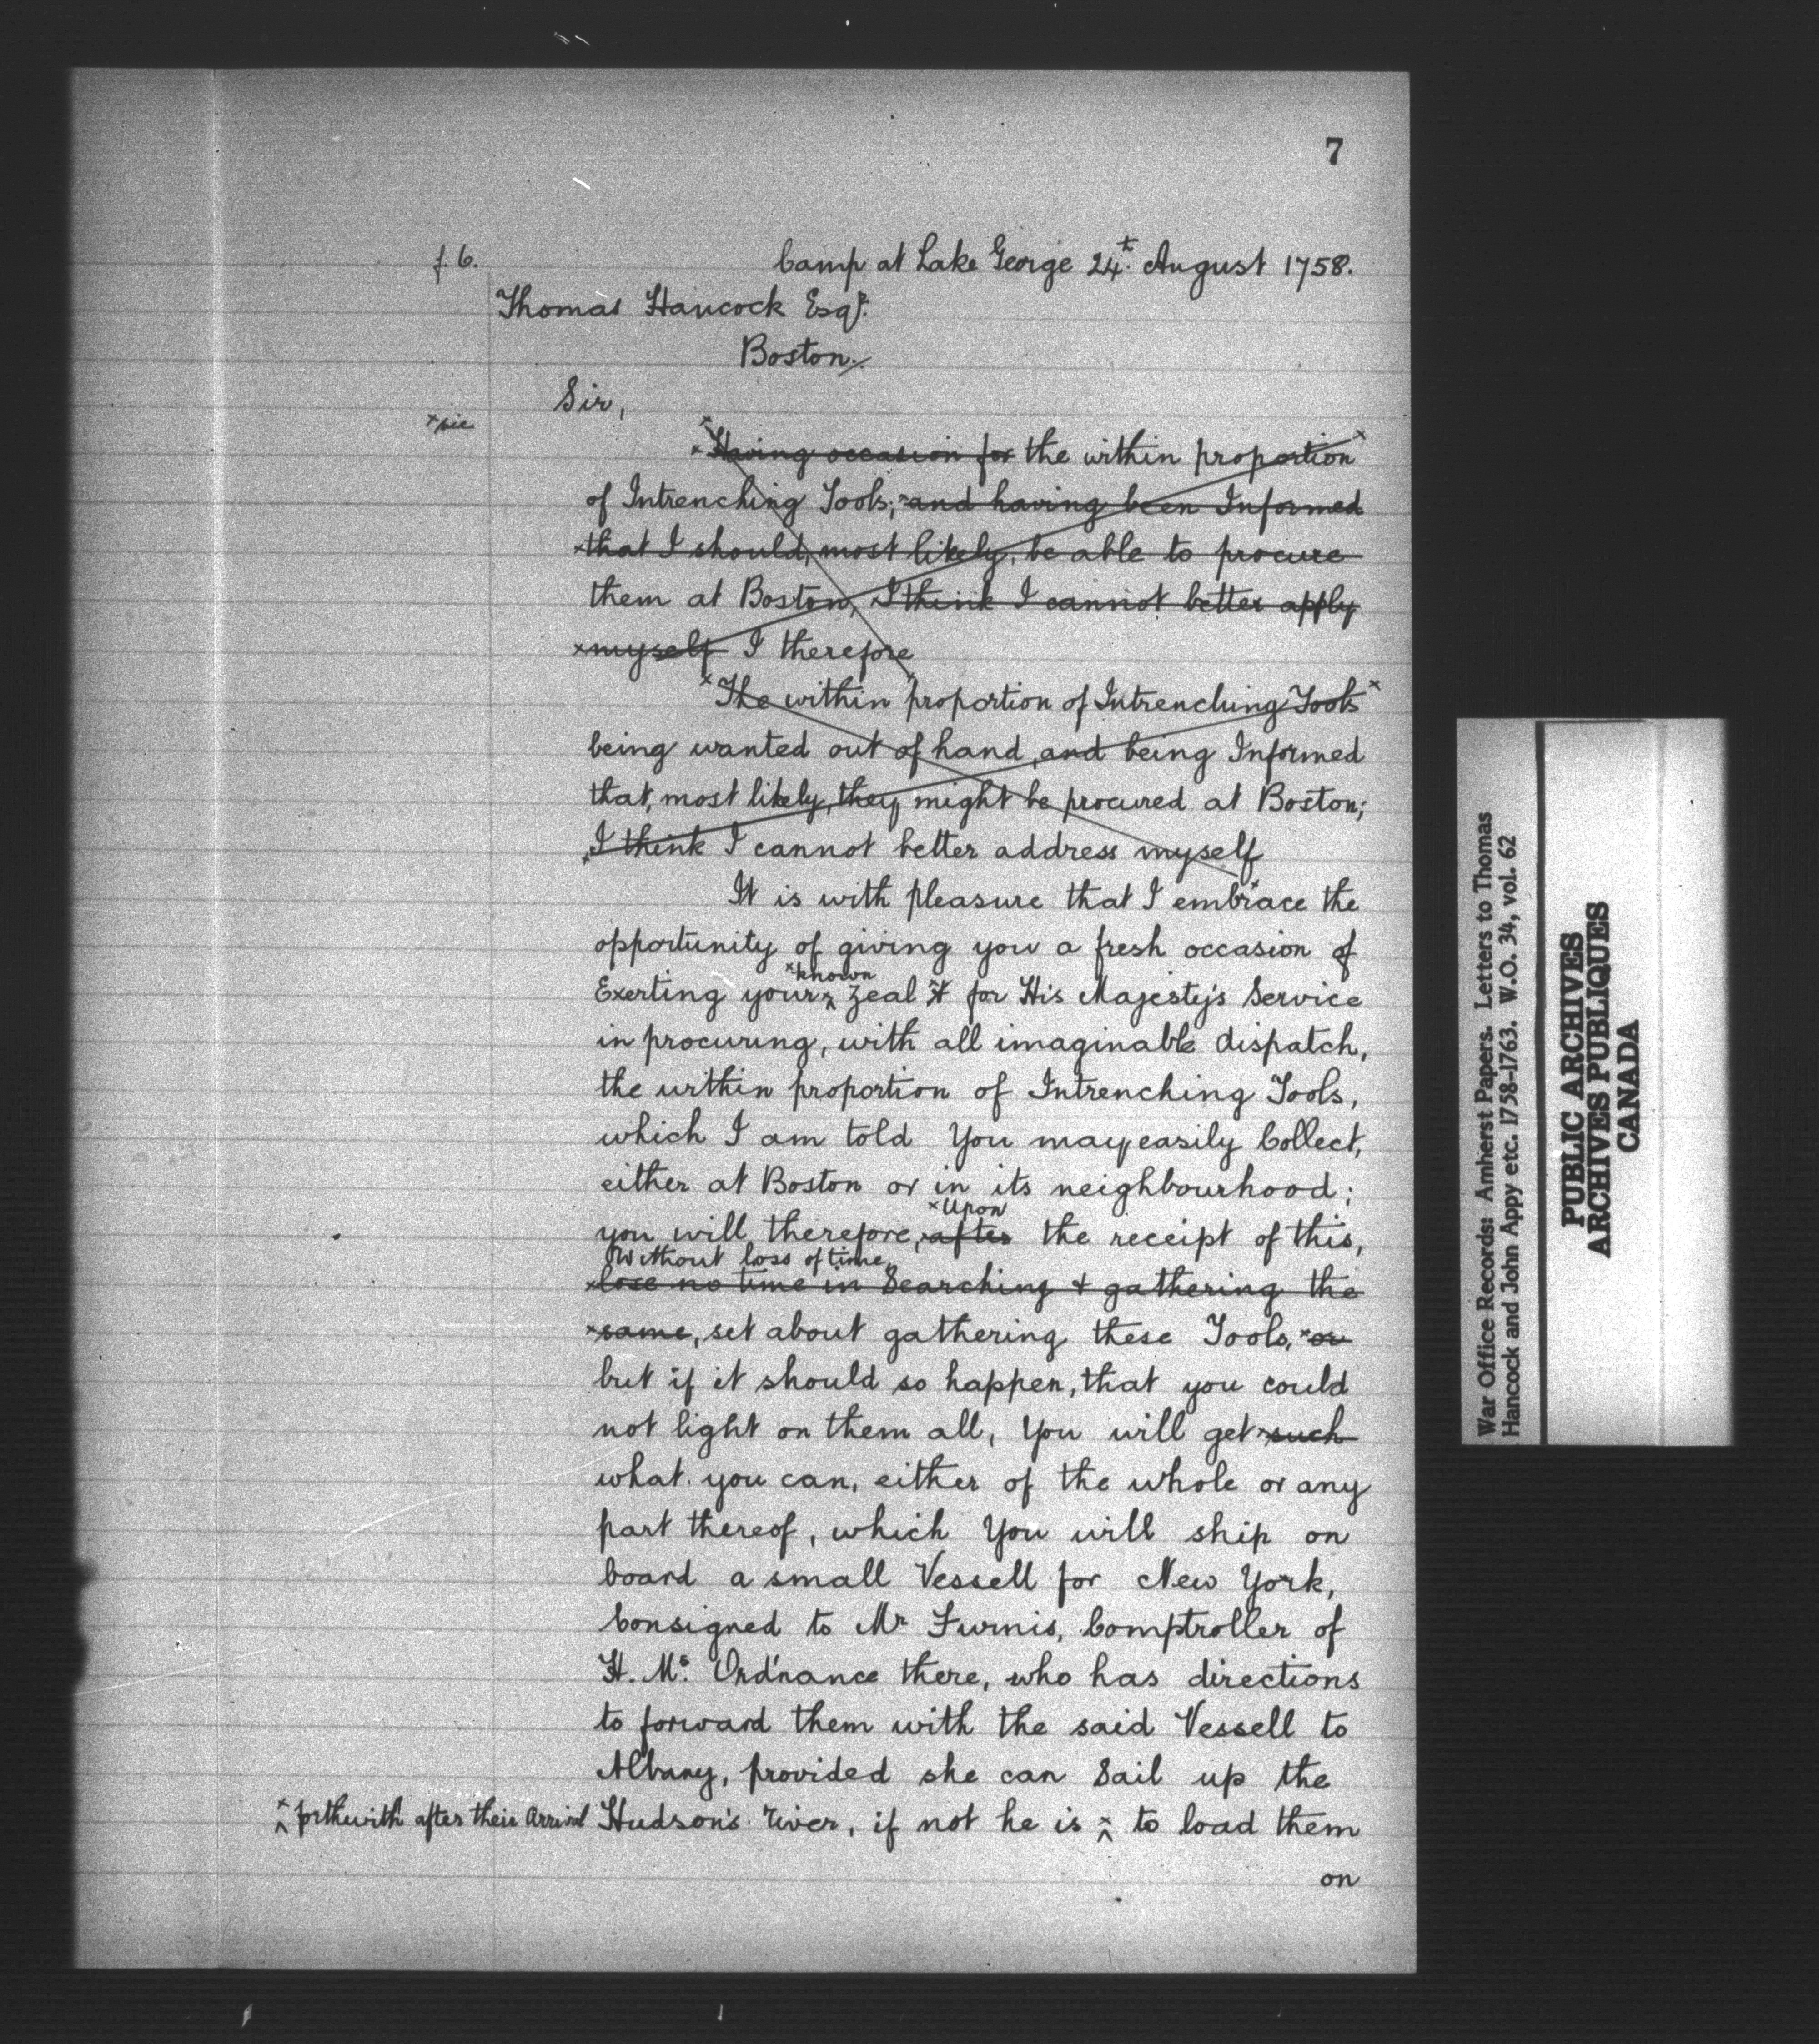 7
f. 6.
Camp at Lake George 24.t August 1758.
Thomas Hancock Esqr.
Boston.
Sir,
x sic
x Having occasion for the within proportion x
of Intrenching Tools; x and having been Informed
x that I should, most likely, be able to procure
them at Boston, I think I cannot better apply
x myself I therefore
x The within proportion of Intrenching Tools x
being wanted out of hand, and being Informed
that, most likely, they might be procured at Boston;
x I think I cannot better address myself
It is with pleasure that I embrace the
opportunity of giving you a fresh occasion of
x known
Exerting your ^ Zeal for His Majesty's Service
in procuring, with all imaginable dispatch,
the within proportion of Intrenching Tools,
which I am told You may easily Collect,
either at Boston or in its neighbourhood;
x Upon
you will therefore, x after the receipt of this,
Without loss of time,
x lose no time in Searching & gathering the
x same, set about gathering these Tools, x or
but if it should so happen, that you could
not light on them all, You will get x such
what you can, either of the whole or any
part thereof, which You will ship on
board a small Vessell for New York,
Consigned to Mr Furnis, Comptroller of
H. Ms. Ord'nance there, who has directions
to forward them with the said Vessell to
Albany, provided she can Sail up the
x ^ forthwith after their Arrival
Hudson's River, if not he is x ^ to load them
on
War Office Records: Amherst Papers. Letters to Thomas
Hancock and John Appy etc. 1758-1763. W.O. 34, vol. 62
PUBLIC ARCHIVES
ARCHIVES PUBLIQUES
CANADA